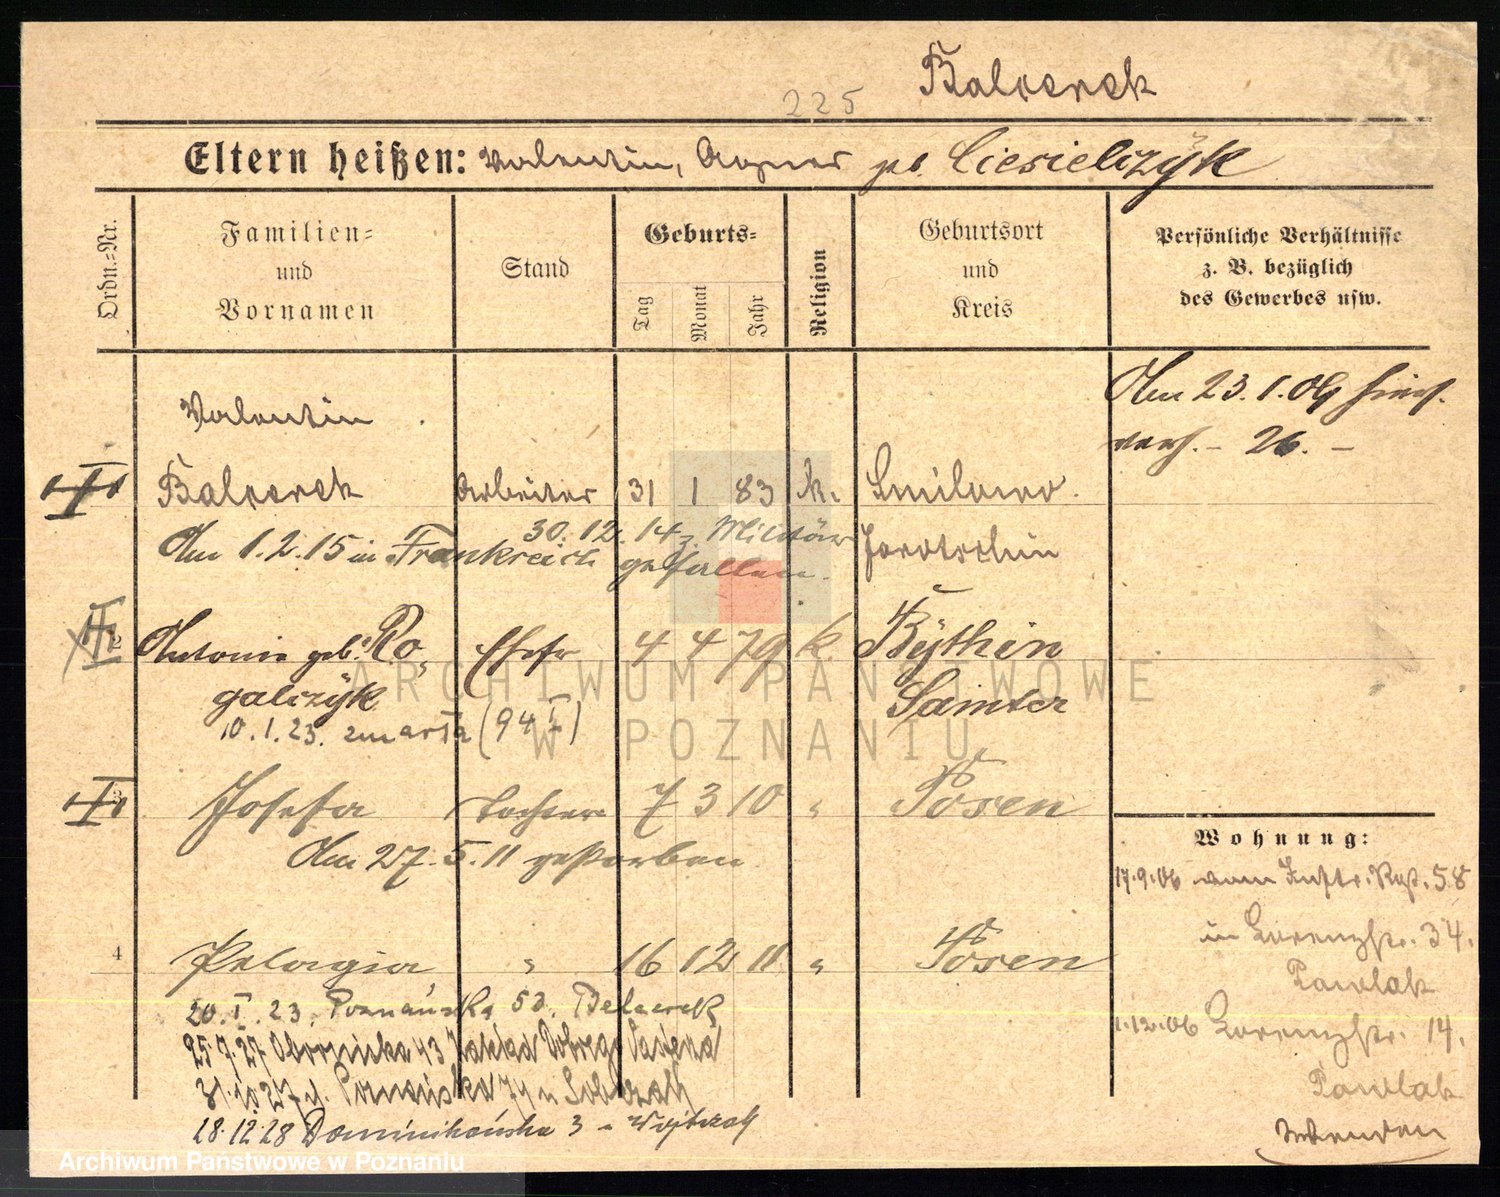 Balcerek
225
Eltern heißen: Valentin, Agnes gb. Ciesielczÿk
Ordn.=Nr.
Familien=
und
Vornamen
Stand
Geburts=
Tag
Monat
Jahr
Religion
Geburtsort
und
Kreis
Persönliche Verhältnisse
z. B. bezüglich
des Gewerbes usw.
Am 23.1.06
26.
Valentin
Balcerek Arbeiter 31 1 83 k. Smilowo.
Jarotschin
30.12.14 z. Militär
Am 1.2.15 in Frankreich gefallen.
2 Antonie geb. Ro„ Ehefr 4 4 79 k. Bÿthin
galczÿk Samter
10.1.23. zmarła (94 I)
3 Josefa Tochter 7 3 10 " Posen
Am 27.5.11 gestorben.
4 Pelagia " 16 12 11 " Posen
20.I.23. Poznańska 53. Balcerek
25.7.27 Obornicka 43 Zakład Dobrego Pasterza
31.10.27 Poznańska
28.12.28 Dominikańska 3
Wohnung:
17.9.06 vom 58
in Lorenzstr. 34.
Pawlak
1.12.06 Lorenzstr. 14.
Pawlak
wenden
ARCHIWUM PAŃSTWOWE
W POZNANIU
Archiwum Państwowe w Poznaniu